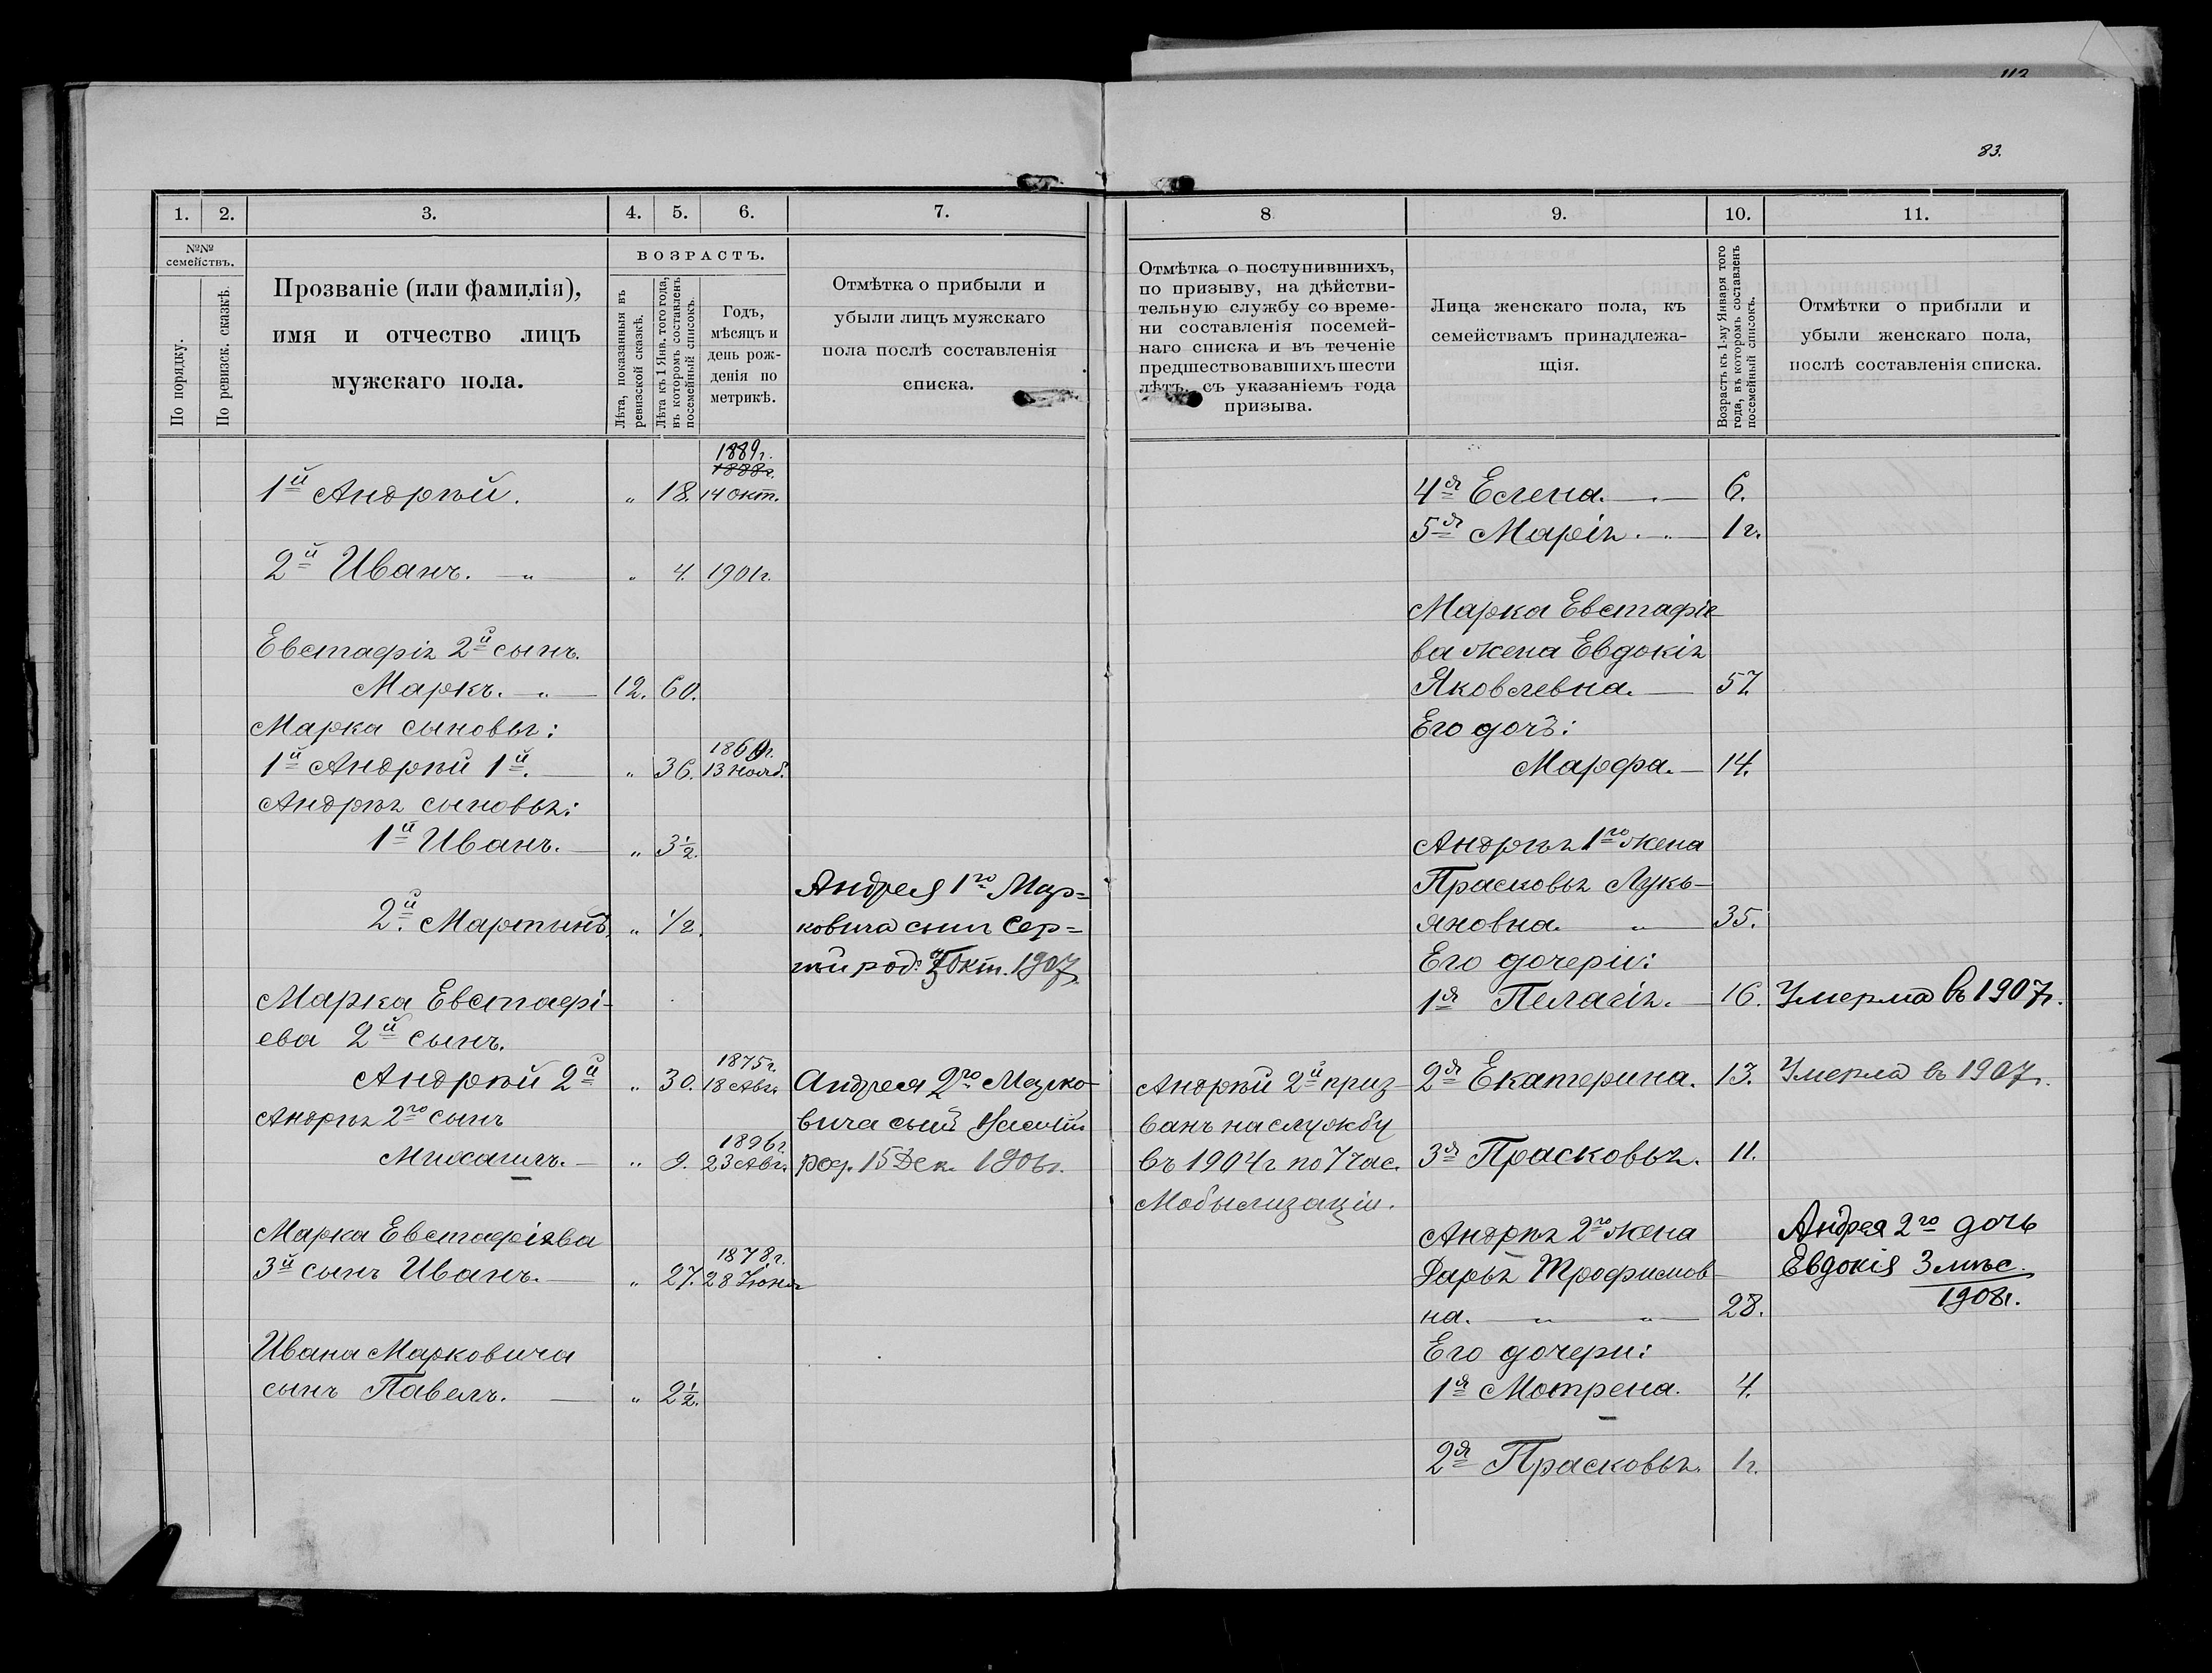 112
83.
1.
2.
3.
4.
5.
6.
7.
8
9.
10.
11.
№№
семействъ.
По порядку.
По ревизск. сказкѣ.
Прозваніе (или фамилія),
имя и отчество лицъ
мужскаго пола.
ВОЗРАСТЪ.
Лѣта, показанныя въ
ревизской сказкѣ.
Лѣта къ 1 Янв. того года,
въ которомъ составленъ
посемейный списокъ.
Годъ,
мѣсяцъ и
день рож-
денія по
метрикѣ.
Отмѣтка о прибыли и
убыли лицъ мужскаго
пола послѣ составленія
списка.
Отмѣтка о поступившихъ,
по призыву, на дѣйстви-
тельную службу со време-
ни составленія посемей-
наго списка и въ теченіе
предшествовавшихъ шести
лѣтъ, съ указаніемъ года
призыва.
Лица женскаго пола, къ
семействамъ принадлежа-
щія.
Возрастъ къ 1-му Января того
года, въ которомъ составленъ
посемейный списокъ.
Отмѣтки о прибыли и
убыли женскаго пола,
послѣ составленія списка.
1889г.
1888г.
1й Андрѣй. „ 18. 14 окт.
2й Иванъ. — „ — „ 4. 1901г.
Евстафія 2й сынъ.
Маркъ. — „ — 12. 60.
Марка сыновья:
1869г.
1й Андрѣй 1й. — „ 36. 13 нояб.
Андрѣя сыновья:
1й Иванъ. — „ 3½.
2й. Мартынъ, „ ½.
Марка Евстафі-
ева 2й сынъ.
1875г.
Андрѣй 2й „ 30. 18 Авг.
Андрѣя 2го сынъ
1896г.
Михаилъ. — „ 9. 23 Авг.
Марка Евстафіева
1878г.
3й сынъ Иванъ. — „ 27. 28 Іюня
Ивана Марковича
сынъ Павелъ. — „ 2½.
Андрея 1го Мар=
ковича сынъ Сер=
гѣй род. Окт. 1907
Андрея 2го Марко-
вича сынъ
род. 15 Дек. 1906г.
Андрѣй 2й приз-
ванъ на службу
въ 1904г по 7 час.
Мобылизаціи.
4я Елена. — „ — 6.
5я Марія. — „ — 1г.
Марка Евстафіе-
ва жена Евдокія
Яковлевна. — 57.
Его дочь:
Марфа. — 14.
Андрѣя 1го жена
Прасковья Лукь-
яновна. „ 35.
Его дочери:
1я Пелагія. — 16.
2я Екатерина. 13.
3я Прасковья. 11.
Андрѣя 2го жена
Дарья Трофимов-
на. — „ — „ — 28.
Его дочери:
1я Мотрена. 4.
2я Прасковья. 1г.
Умерла въ 1907г.
Умерла въ 1907г.
Андрея 2го дочь
Евдокія 3 мѣс.
1908г.